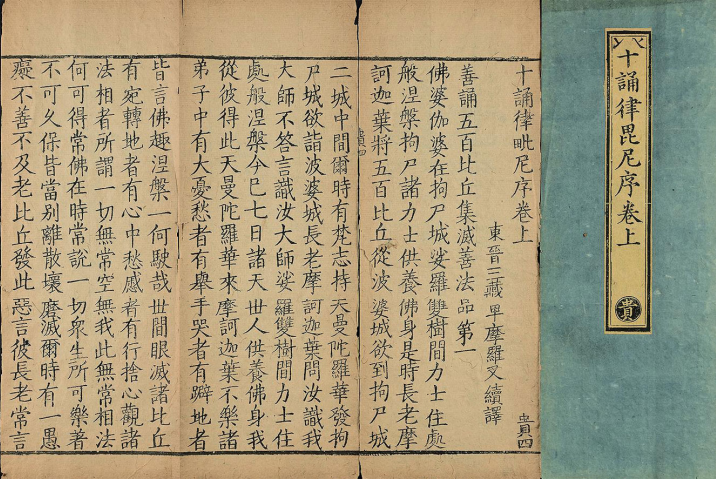 十誦律毘尼序卷上
貴
十誦律毗尼序卷上
東晉三藏卑摩羅叉續譯
貴四
善誦五百比丘集滅善法品第一
佛婆伽婆在拘尸城娑羅雙樹間力士住處
般涅槃拘尸諸力士供養佛身是時長老摩
訶迦葉將五百比丘從波婆城欲到拘尸城
貴四
二城中間爾時有梵志持天曼陀羅華發拘
尸城欲詣波婆城長老摩訶迦葉問汝識我
大師不答言識汝大師娑羅雙樹間力士住
處般涅槃今巳七日諸天世人供養佛身我
從彼得此天曼陀羅華來摩訶迦葉不樂諸
弟子中有大憂愁者有舉手哭者有躃地者
皆言佛趣涅槃一何駛哉世間眼滅諸比丘
有宛轉地者有心中愁慼者有行捨心觀諸
法相者所謂一切無常空無我此無常相法
何可得常佛在時常說一切衆生所可樂著
不可久保皆當別離散壞磨滅爾時有一愚
癡不善不及老比丘發此惡言彼長老常言